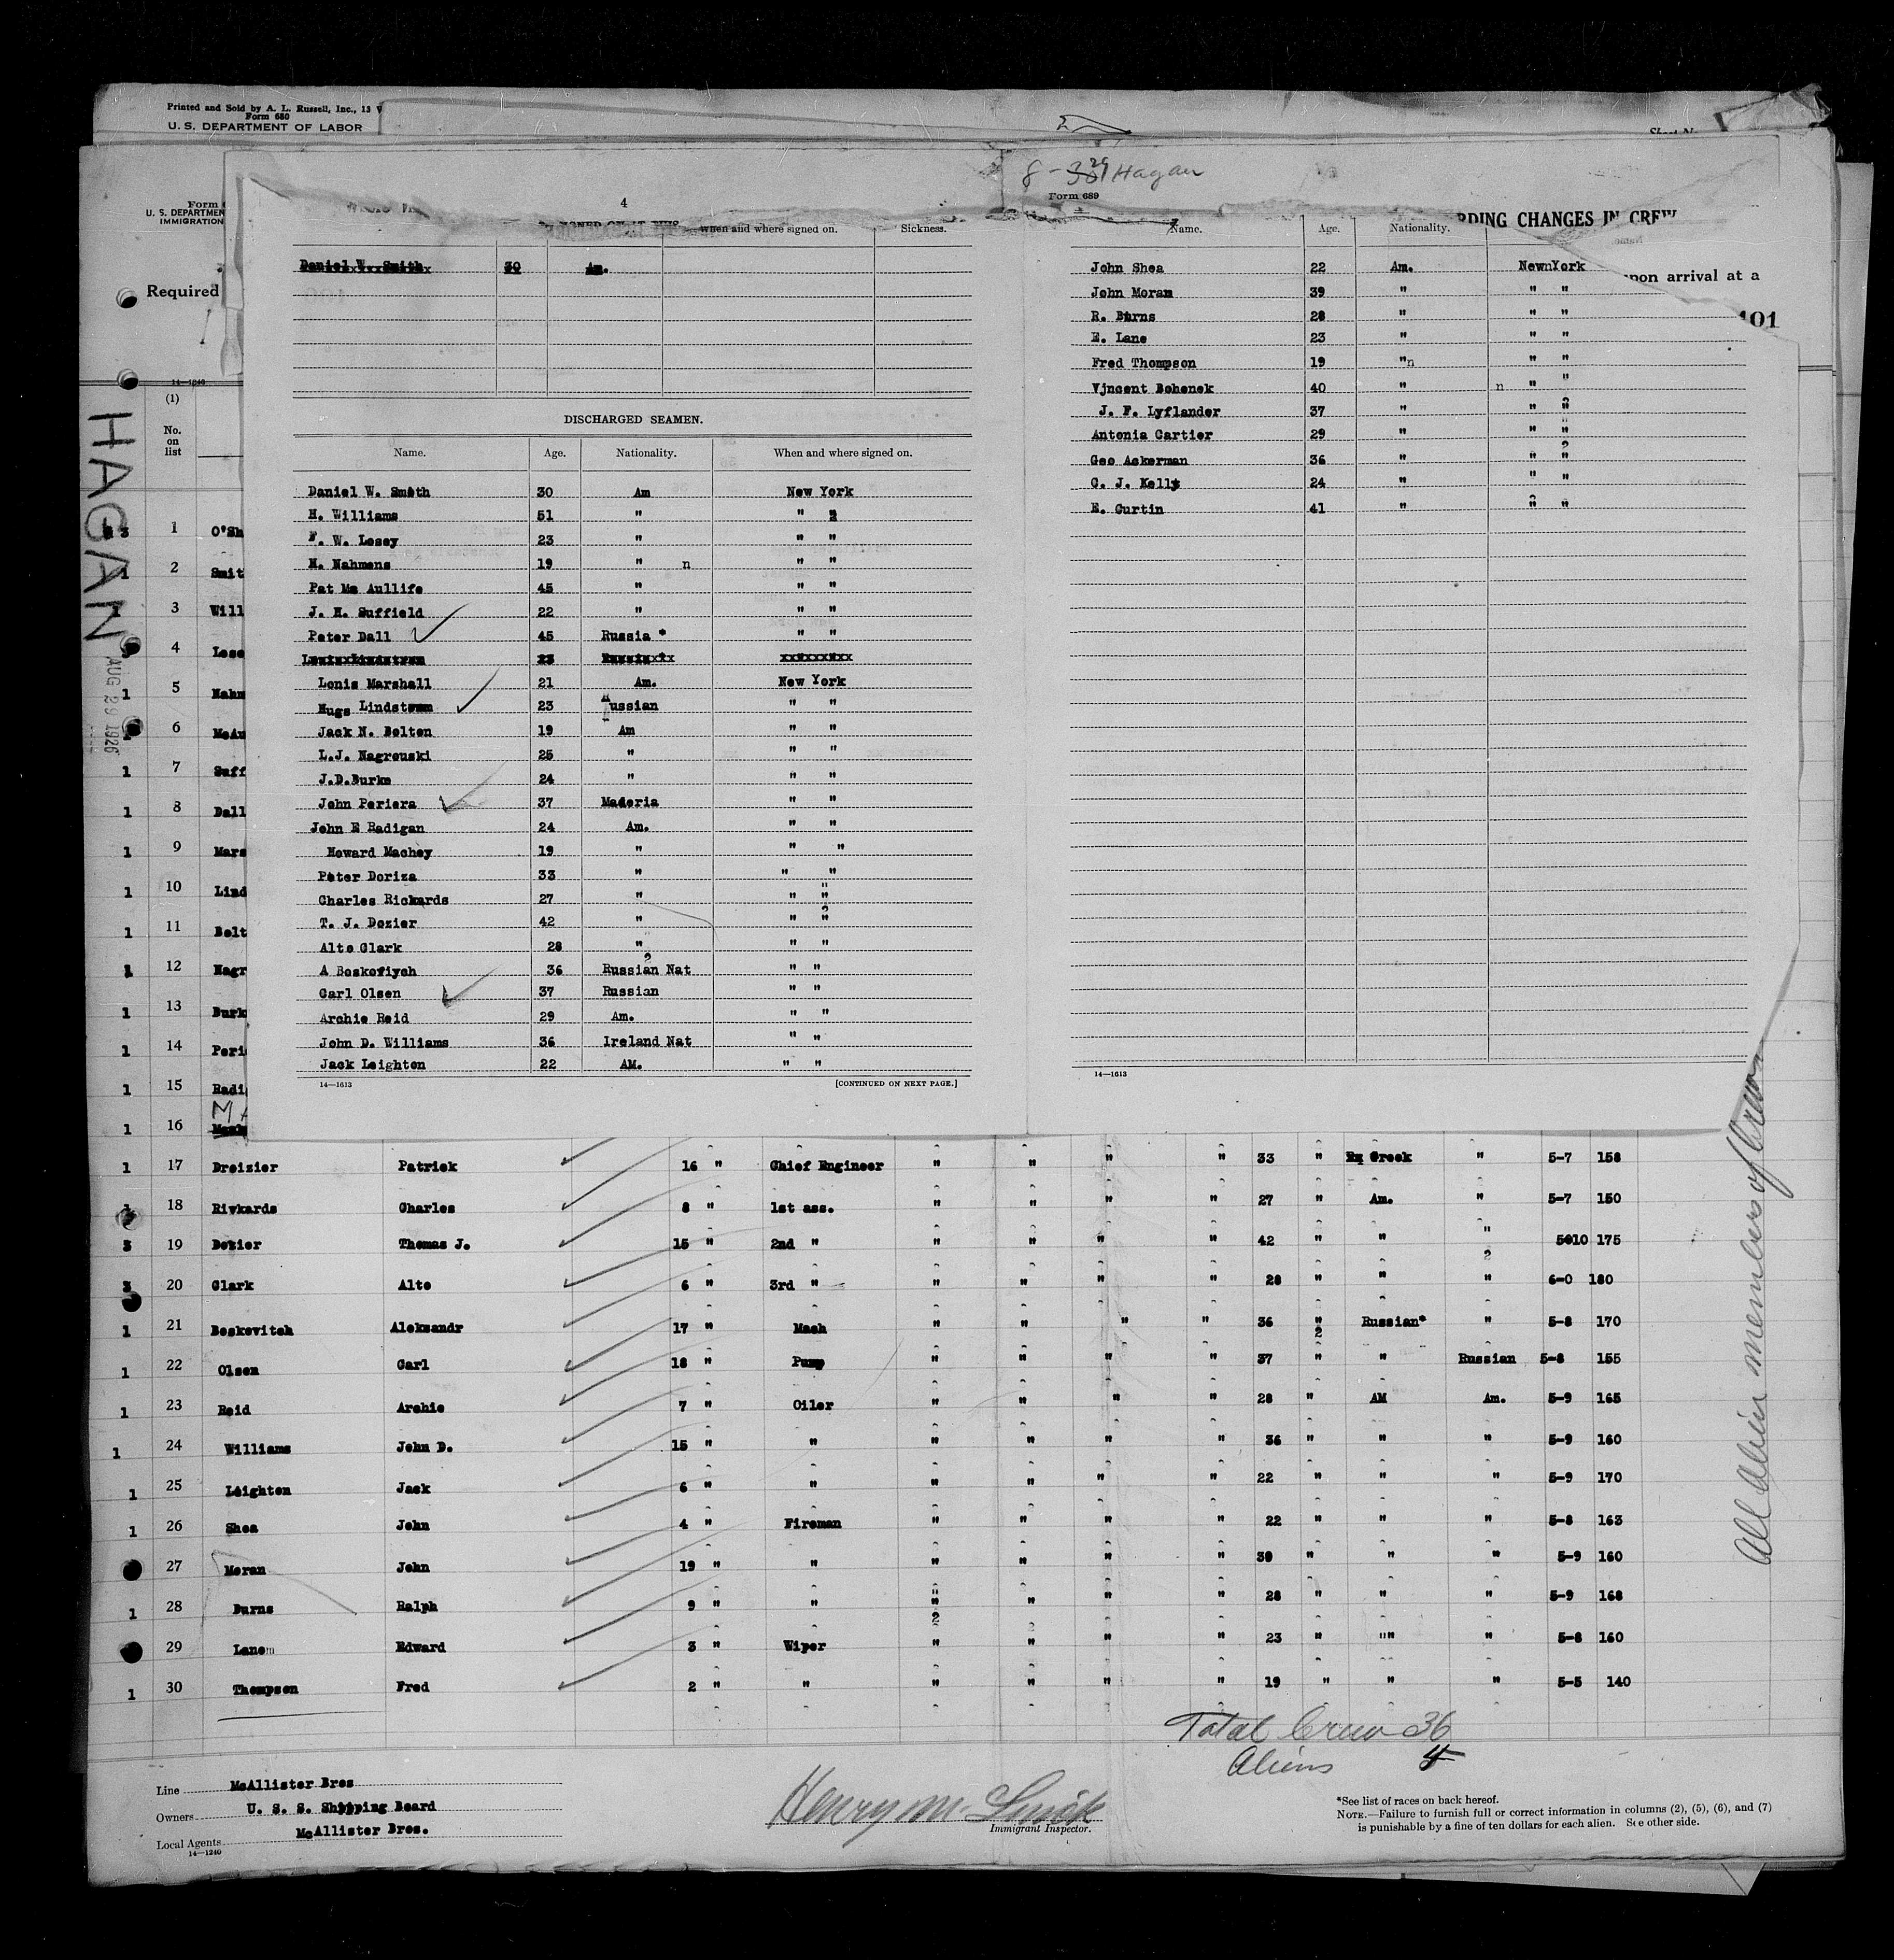 Printed and Sold by A. L. Russell, Inc., 13
Form 680
U. S. DEPARTMENT OF LABOR
8-29 Hagan
Form
U. S. DEPARTMEN
IMMIGRATION
Required
14—1240
(1)
No. on list
HAGAN
AUG 29 1926
4
When and where signed on. Sickness.
Daniel W. Smith 30 Am.
DISCHARGED SEAMEN.
Name. Age. Nationality. When and where signed on.
Daniel W. Smith 30 Am New York
H. Williams 51 " "
F. W. Losey 23 " " "
H. Nahmens 19 " n " "
Pat Mc Aullife 45 " " "
J. H. Suffield 22 " " "
Peter Dall 45 Russia * " "
Lonis Marshall 21 Am. New York
Hugs Lindstrom 23 Russian " "
Jack N. Bolton 19 Am " "
L.J. Nagrouski 25 " " "
J.D.Burke 24 " " "
John Periera 37 Maderia " "
John E Radigan 24 Am. " "
Howard Machey 19 " " "
Peter Doriza 33 " " "
Charles Rickards 27 " " "
T. J. Dozier 42 " " "
Alto Clark 28 " " "
A Boskofiych 36 Russian Nat " "
Carl Olsen 37 Russian " "
Archie Reid 29 Am. " "
John D. Williams 36 Ireland Nat " "
Jack Leighton 22 AM. " "
14—1613 [CONTINUED ON NEXT PAGE.]
Form 689
RDING CHANGES IN CREW
upon arrival at a
401
Name. Age. Nationality.
John Shea 22 Am. NewnYork
John Moran 39 " " "
R. Burns 28 " " "
E. Lane 23 " " "
Fred Thompson 19 "n " "
Vjncent Bohenek 40 " n " "
J. F. Lyflander 37 " " "
Antonia Cartier 29 " " "
Geo Ackerman 36 " " "
C. J. Kelly 24 " " "
E. Curtin 41 " " "
14—1613
3 1 O'Sh
1 2 Smit
1 3 Will
4 Lose
1 5 Nahm
6 McAu
1 7 Suff
1 8 Dall
1 9 Mars
1 10 Lind
1 11 Bolt
1 12 Nagr
1 13 Burk
1 14 Peri
1 15 Radi
1 16 MA
1 17 Dreizier Patrick 16 " Chief Engineer " " " " 33 " Greek " 5-7 158
1 18 Rivkards Charles 8 " 1st ass. " " " " 27 " Am. " 5-7 150
3 19 Dozier Thomas J. 15 " 2nd " " " " " 42 " " " 5010 175
3 20 Clark Alto 6 " 3rd " " " " " 28 " " " 6-0 180
1 21 Boskovitch Aleksandr 17 " Mach " " " " 36 " Russian* " 5-8 170
1 22 Olsen Carl 18 " Pump " " " " 37 " " Russian 5-8 155
1 23 Reid Archie 7 " Oiler " " " " 28 " AM Am. 5-9 165
1 24 Williams John D. 15 " " " " " " 36 " " " 5-9 160
1 25 Leighton Jack 6 " " " " " " 22 " " " 5-9 170
1 26 Shea John 4 " Fireman " " " " 22 " " " 5-8 163
27 Moran John 19 " " " " " " 39 " " " 5-9 160
1 28 Burns Ralph 9 " " " " " " 28 " " " 5-9 168
29 Lane Edward 3 " Wiper " " " " 23 " "" " 5-8 160
1 30 Thompson Fred 2 " " " " " " 19 " " " 5-5 140
All Alien members of crew
Total Crew 36
Aliens 4
Line McAllister Bros
Owners U. S. S. Shipping Board
Local Agents McAllister Bros.
14—1240
Immigrant Inspector.
*See list of races on back hereof.
NOTE.—Failure to furnish full or correct information in columns (2), (5), (6), and (7)
is punishable by a fine of ten dollars for each alien. See other side.